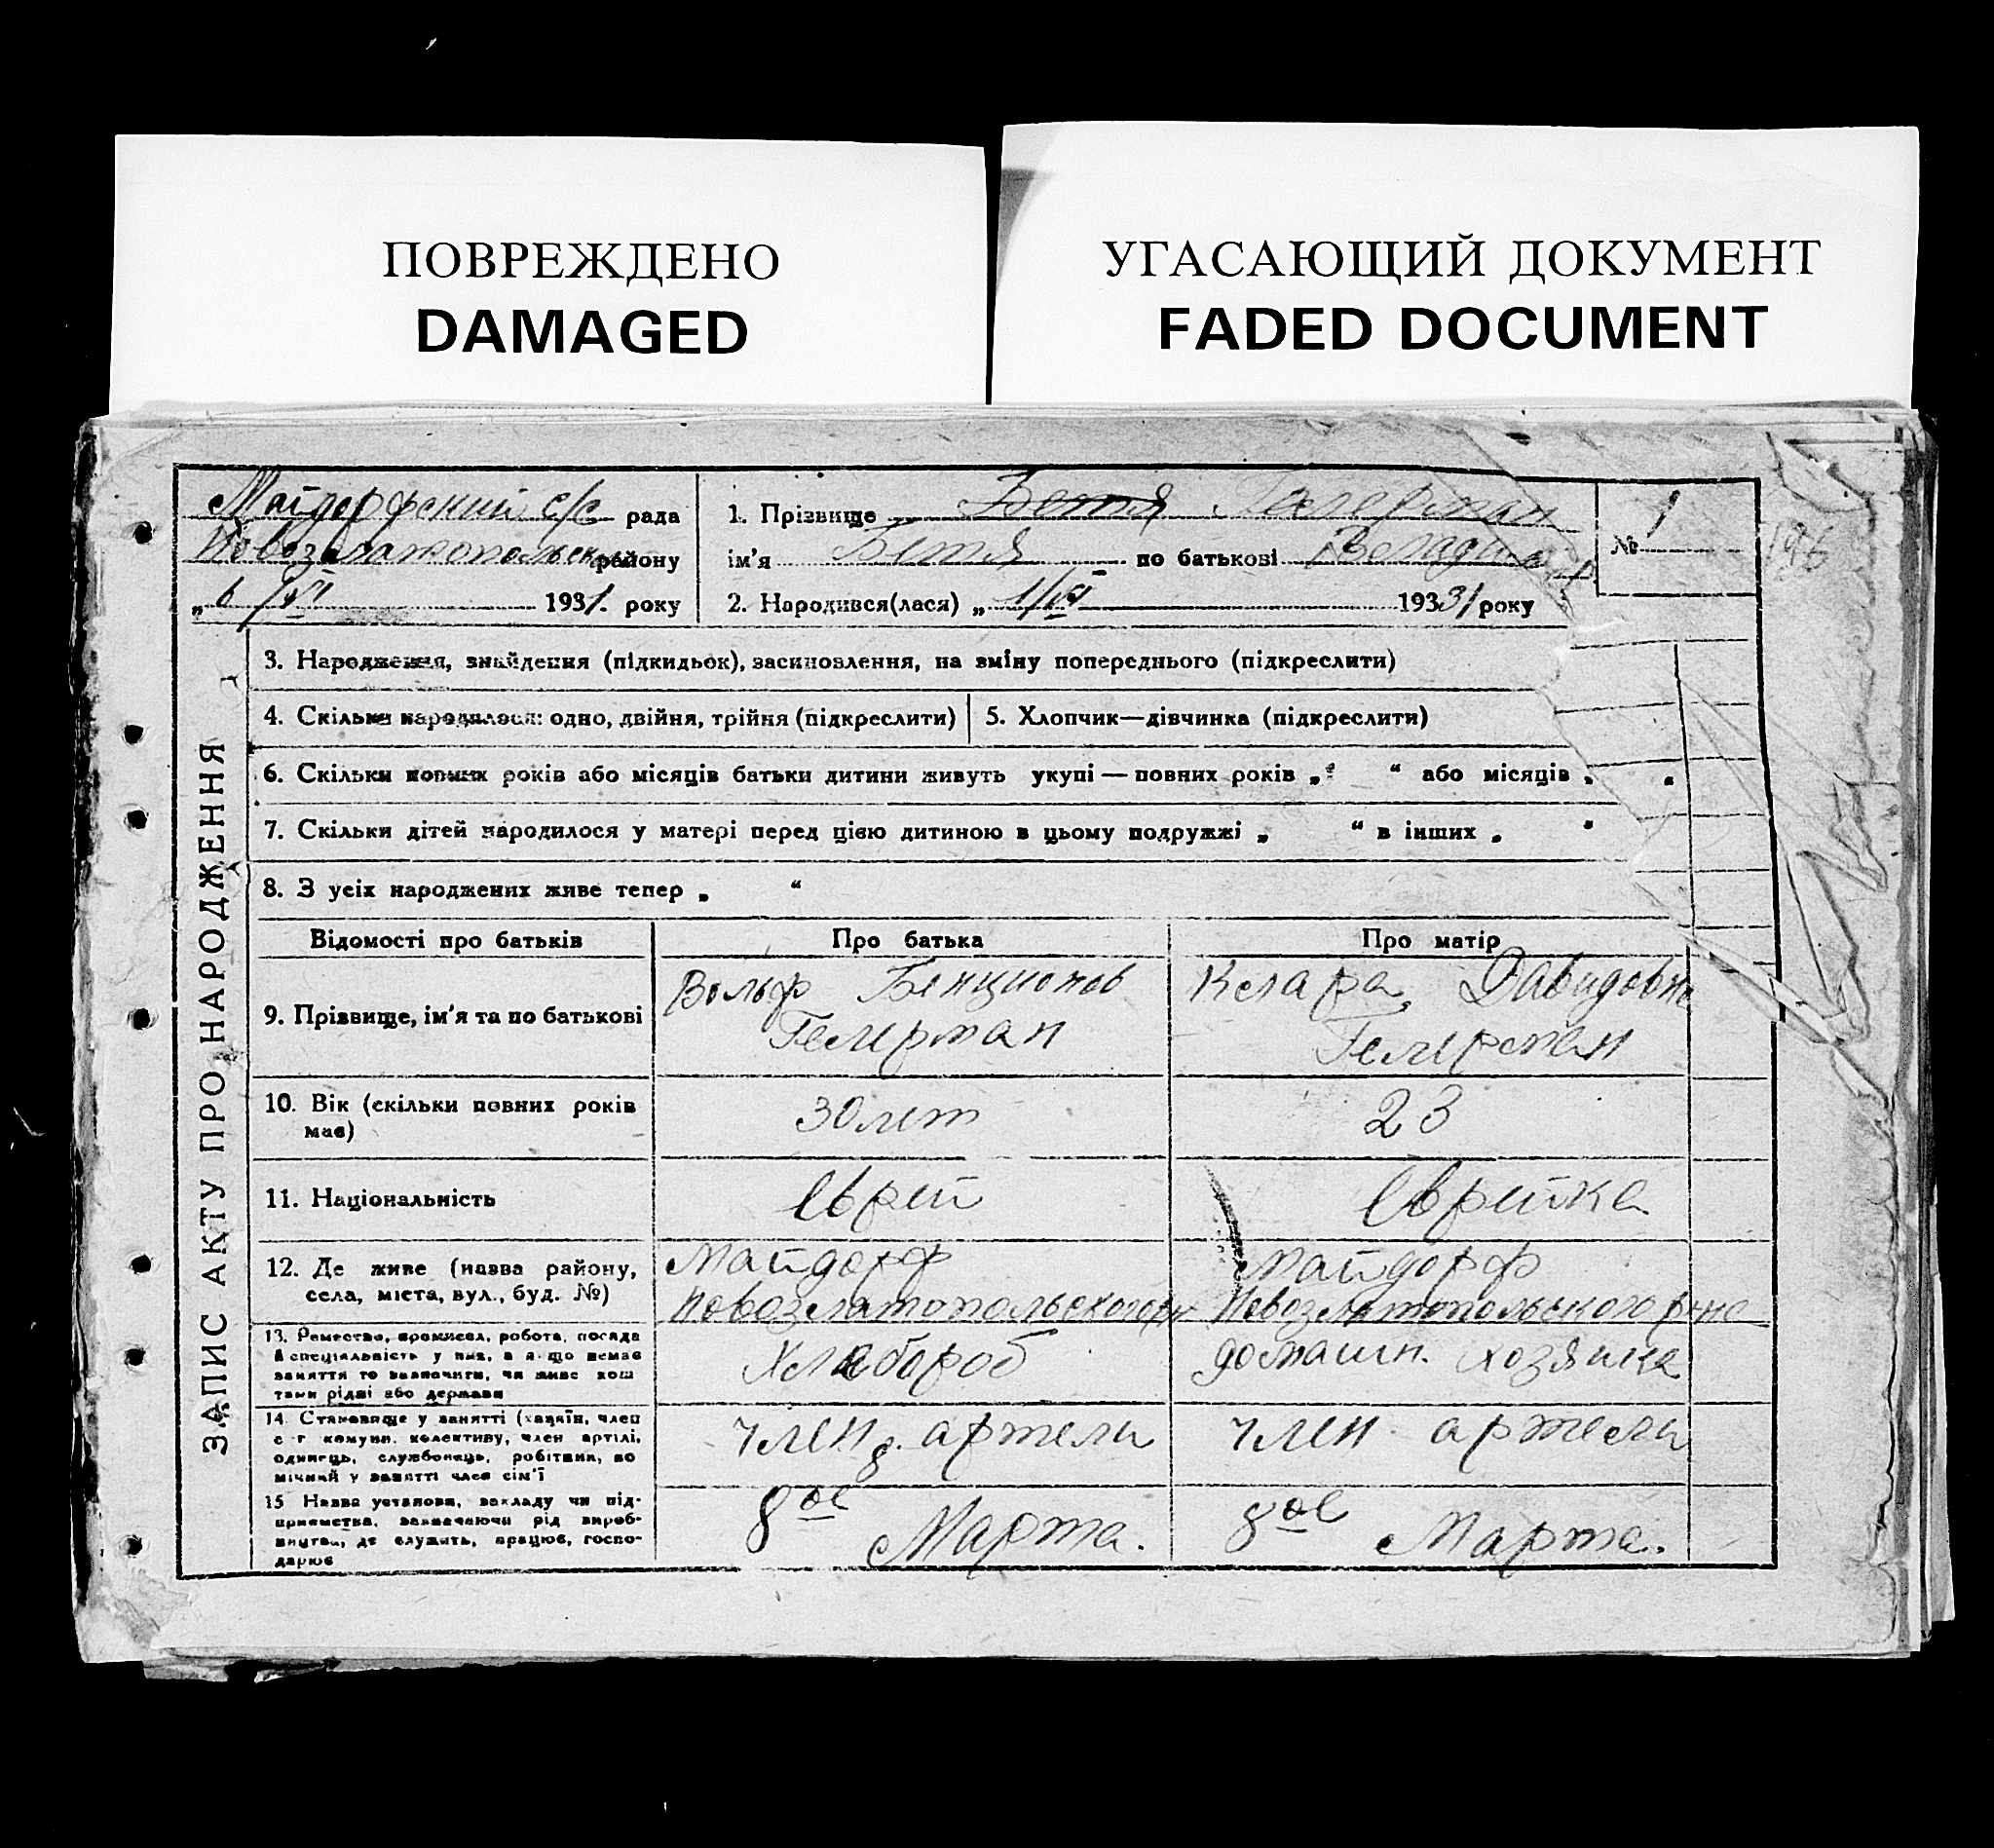 ПОВРЕЖДЕНО
DAMAGED
УГАСАЮЩИЙ ДОКУМЕНТ
FADED DOCUMENT
Майдорфский с/с рада
Новозлатопольск району
„ 6/VI 1931. року
1. Прізвище Бетя Гелерман
ім'я Бетя по батькові
2. Народився(лася) „ 1/VI 1933 1 року
№ 1
196
ЗАПИС АКТУ ПРО НАРОДЖЕННЯ
3. Народження, знайдення (підкидьок), засиновлення, на зміну попереднього (підкреслити)
4. Скільки народилося: одно, двійня, трійня (підкреслити)
5. Хлопчик—дівчинка (підкреслити)
6. Скільки повних років або місяців батьки дитини живуть укупі — повних років „ “ або місяців „ “
7. Скільки дітей народилося у матері перед цією дитиною в цьому подружжі „ “ в інших „ “
8. З усіх народжених живе тепер „ “
Відомості про батьків
Про батька
Про матір
9. Прізвище, ім'я та по батькові
Вольф Бенционов
Гелерман
Клара Давидовна
Гелерман
10. Вік (скільки повних років
має)
30 лет
23
11. Національність
Еврей
Еврейка
12. Де живе (назва району,
села, міста, вул., буд. №)
Майдорф
Новозлатопольского рн
Майдорф
Новозлатопольского рна
13. Ремество, промисел, робота, посада
й спеціяльність у них, а якщо немає
заняття то зазначити, чи живе кош
тами рідні або держави
Хлебороб
домашн. хозяйка
14. Становище у занятті (хазяїн, член
с-г комуни, колективу, член артілі,
одинець, службовець, робітник, по
мічний у занятті член сім'ї
член артели
член артели
15 Назва установи, закладу чи під-
приємства, зазначаючи рід вироб-
ництва, де служить, працює, госпо-
дарює
8ое Марта.
8ое Марта.